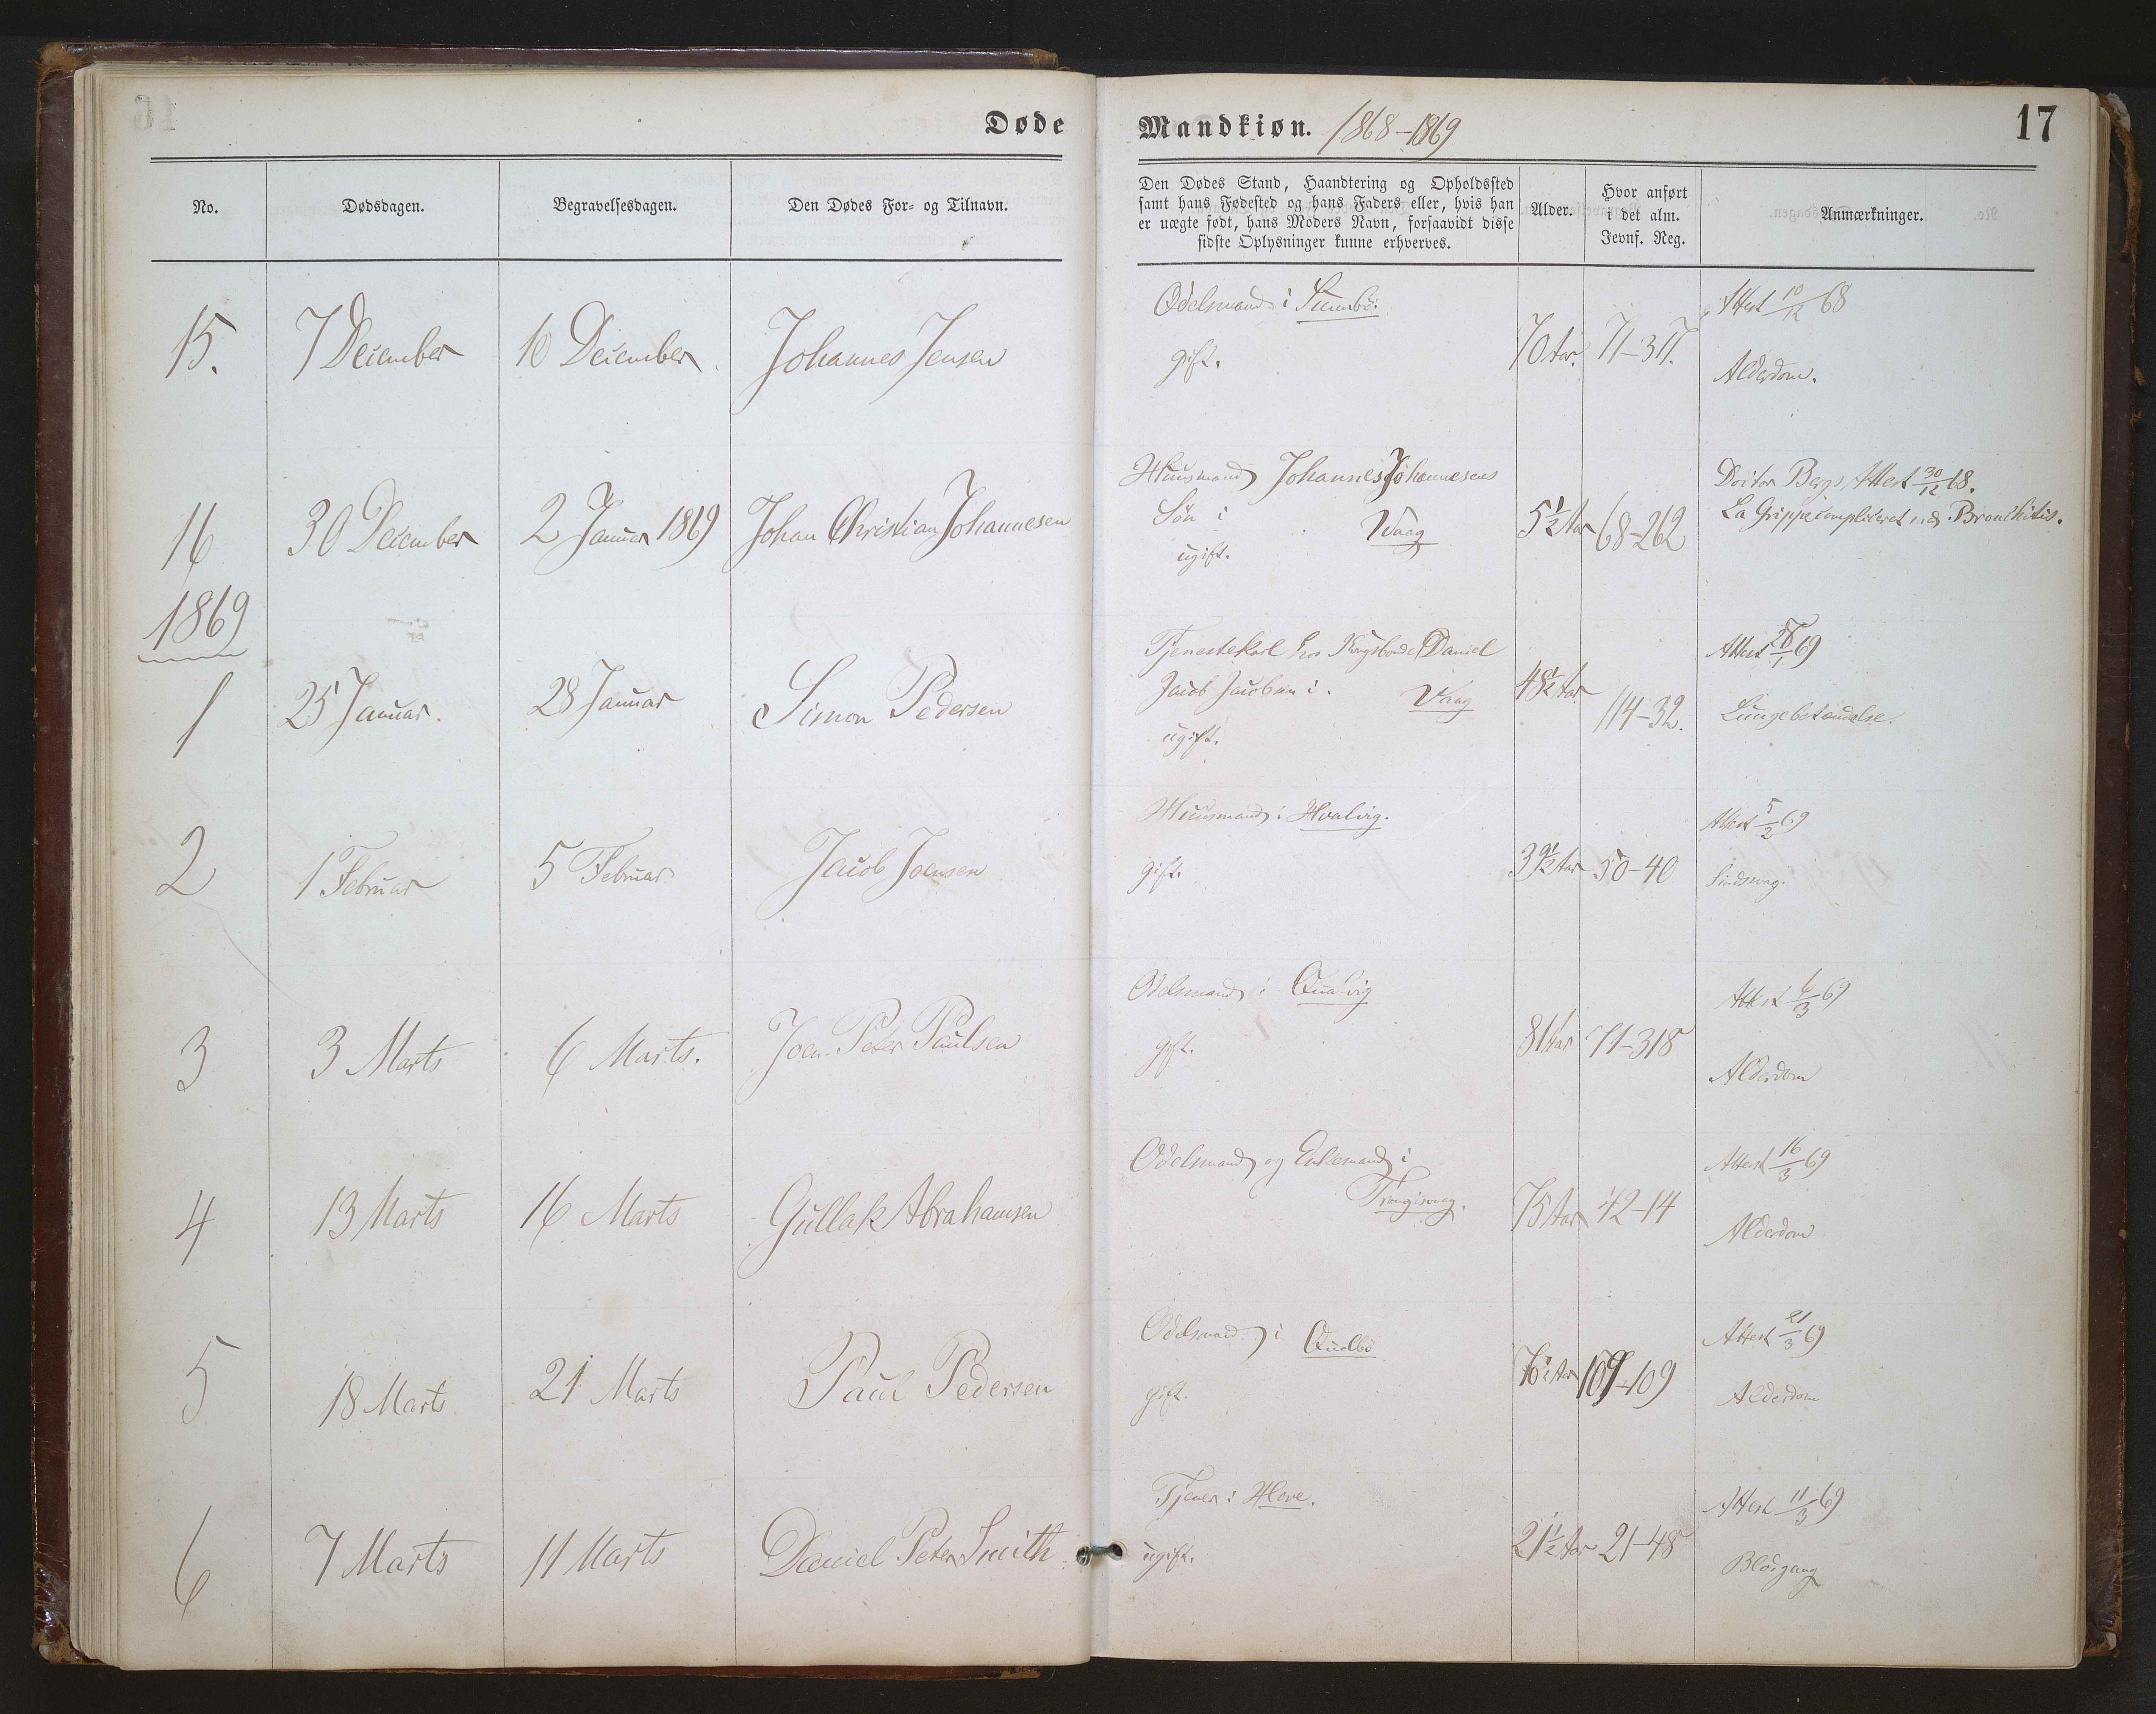 Døde Mandkiøn. 1868-1869
17
No.
Dødsdagen.
Begravelsesdagen.
Den Dødes For- og Tilnavn.
Den Dødes Stand, Haandtering og Opholdssted
samt hans Fødested og hans Faders eller, hvis han
er uægte født, hans Moders Navn, forsaavidt disse
sidste Oplysninger kunne erhverves.
Alder.
Hvor anført
i det alm.
Jevnf. Reg.
Anmærkninger.
15.
7 December
10 December
Johannes Jensen
Odelsmand i Sumbö.
gift.
70 Aar.
71-317.
Attest 10/12 68
Alderdom.
16
30 December
2 Januar 1869
Johan Christian Johannesen
Huusmand Johannes Johannesens
Sön i Vaag
ugift.
5½ Aar
68-262
Doctor Bergs Attest 30/12 68.
La Grippe compliceret med Bronchitis.
1869
1
25 Januar.
28 Januar
Simon Pedersen
Tjenestekarl hos Kongsbonde Daniel
Jacob Jacobsen i Vaag
ugift.
48½ Aar
114-32.
Attest 28/1 69
Lungebetændelse.
2
1 Februar
5 Februar
Jacob Joensen
Huusmand i Hvalvig.
gift.
39½ Aar
50-40
Attest 5/2 69
Sindsvag.
3
3 Marts
6 Marts.
Joen Peter Paulsen
Odelsmand i Qualvig
gift.
81 Aar
71-318
Attest 6/3 69
Alderdom
4
13 Marts
16 Marts
Gullak Abrahamsen
Odelsmand og Enkemand i
Trangisvaag.
75 Aar
42-14
Attest 16/3 69
Alderdom
5
18 Marts
21 Marts
Paul Pedersen
Odelsmand i Qualbö
gift.
109-109
Attest 21/3 69
Alderdom
6
7 Marts
11 Marts
Daniel Peter Smith
Tjener i Hove.
ugift.
21½ Aar
21-48
Attest 11/3 69
Blodgang